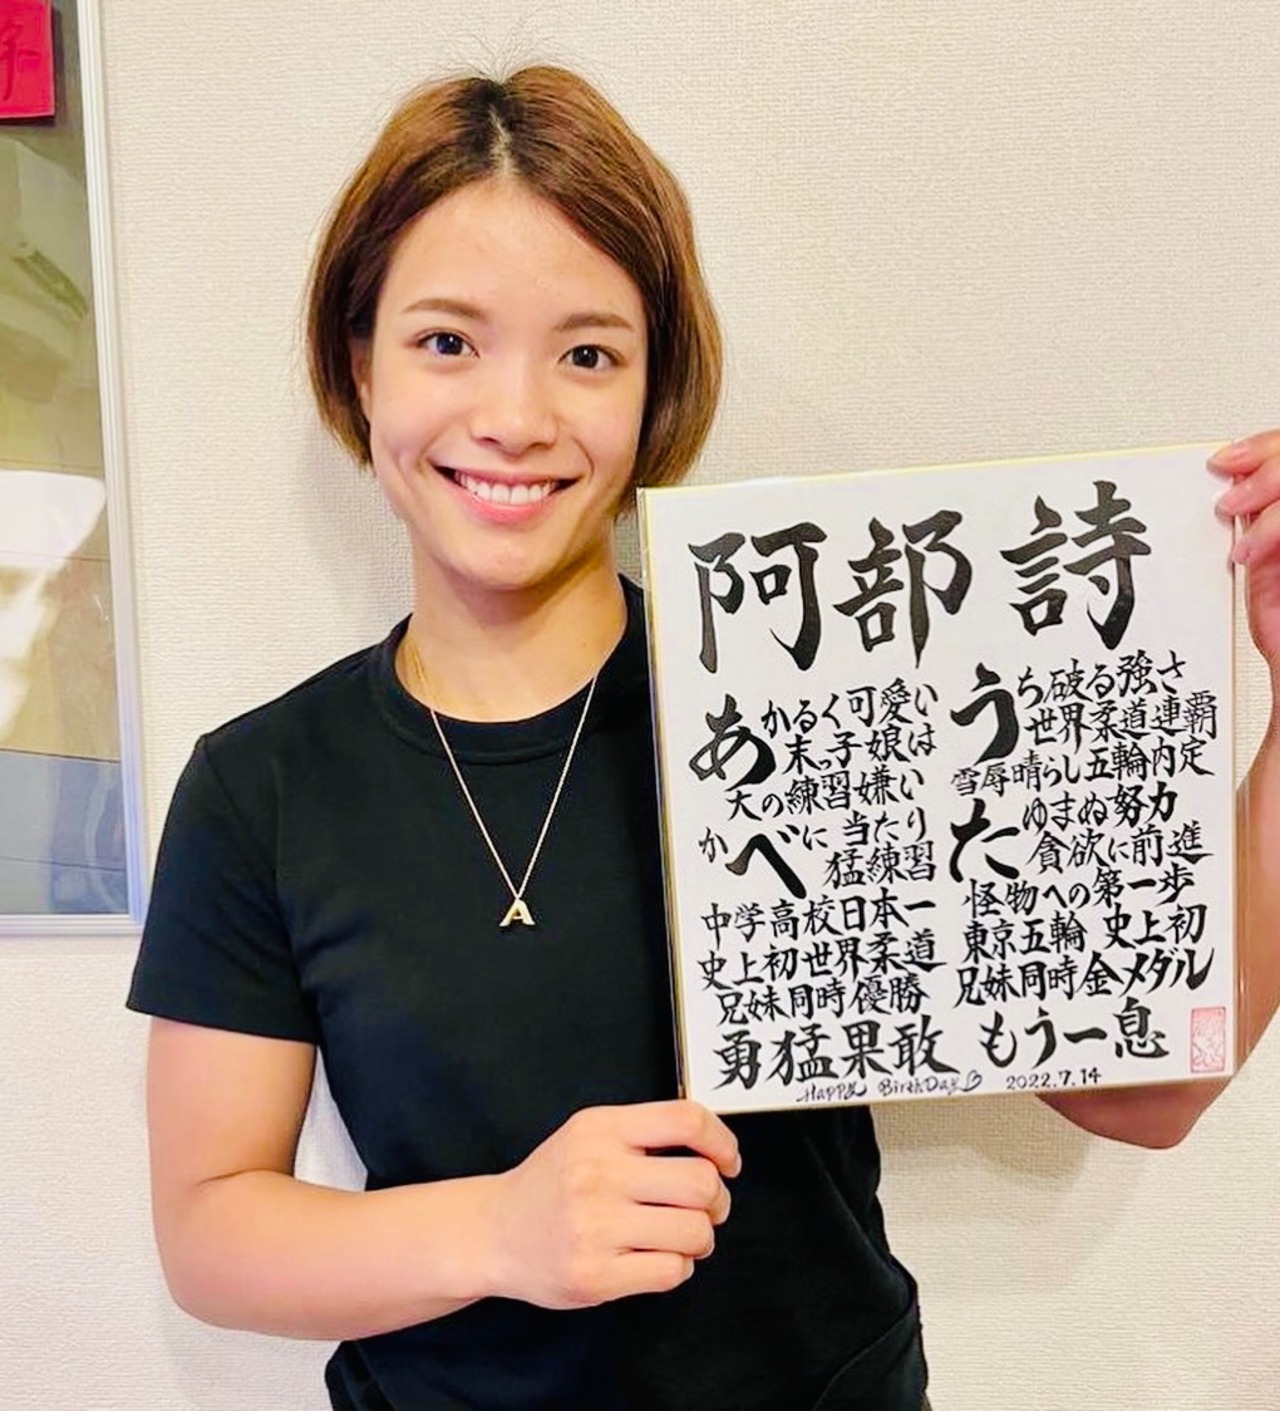 阿部 詩
うち破る強さ
世界柔道連覇
雪辱晴らし五輪内定
たゆまぬ努力
貪欲に前進
怪物への第一歩
東京五輪 史上初
兄妹同時金メダル
もう一息
あかるく可愛い
末っ子娘は
大の練習嫌い
かべに当たり
猛練習
中学高校日本一
史上初世界柔道
兄妹同時優勝
勇猛果敢
Happy BirthDay♡ 2022.7.14